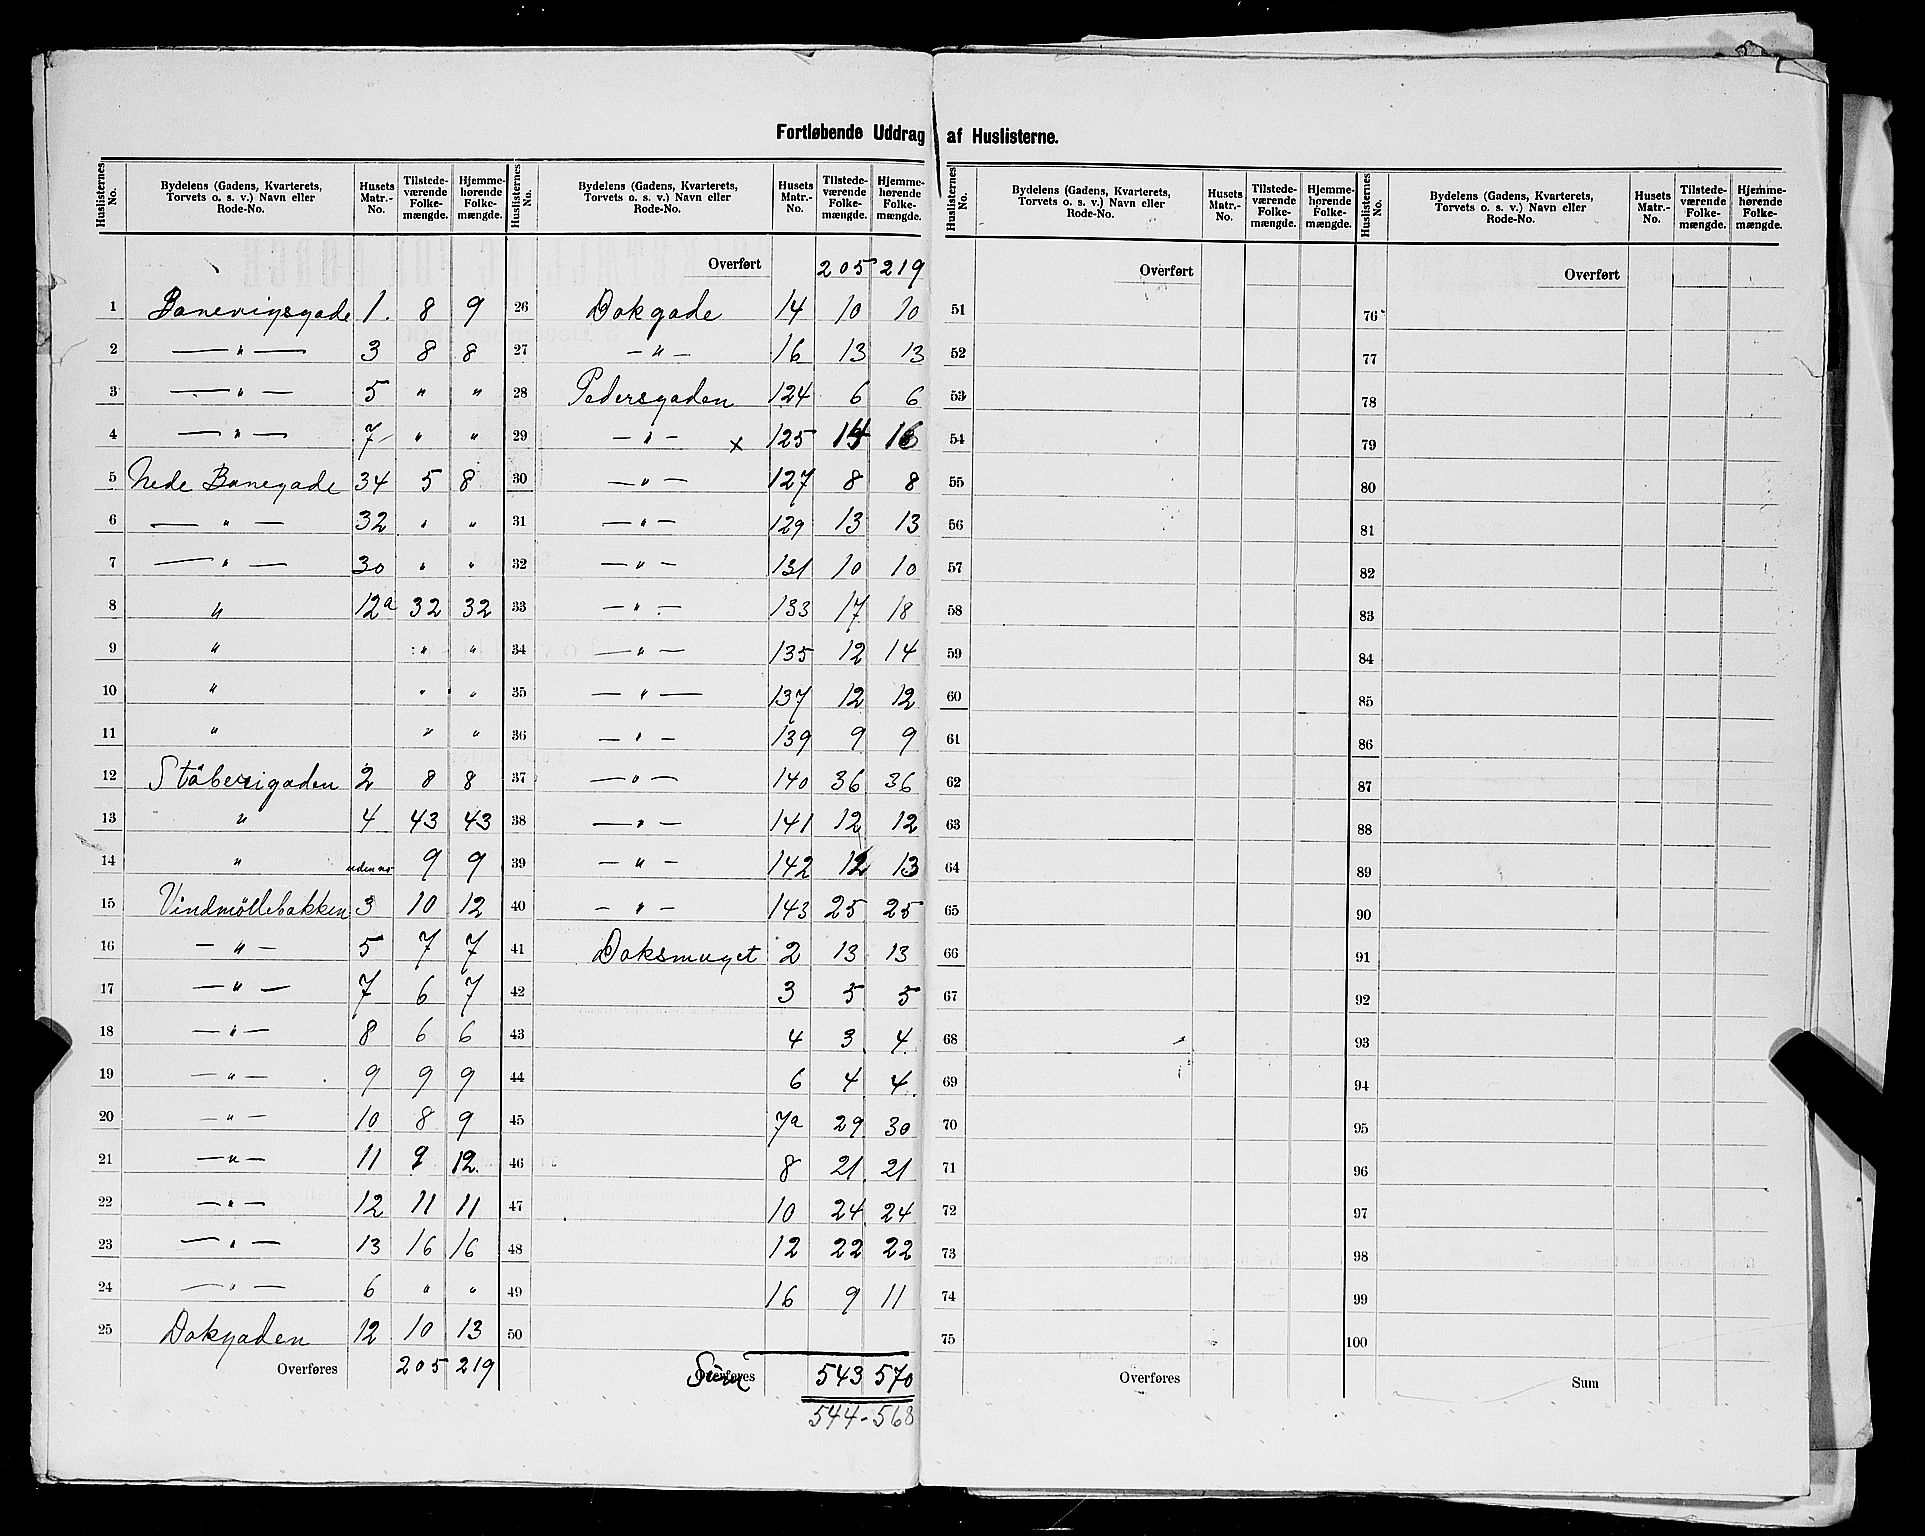 Fortløbende Uddrag af Huslisterne.
Huslisternes No. | Bydelens (Gadens, Kvarterets, Torvets o. s. v.) Navn eller Rode-No. | Husets Matr.-No. | Tilstedeværende Folkemængde. | Hjemmehørende Folkemængde.
1 Banevigsgade 1. 8 9
2 — " — 3 8 8
3 — " — 5 " "
4 — " — 7 " "
5 Nede Banegade 34 5 8
6 — " — 32 " "
7 — " — 30 " "
8 " 12a 32 32
9 " " "
10 " " "
11 " " "
12 Støberigaden 2 8 8
13 " 4 43 43
14 " uden no 9 9
15 Vindmöllebakken 3 10 12
16 — " — 5 7 7
17 — " — 7 6 7
18 — " — 8 6 6
19 — " — 9 9 9
20 — " — 10 8 9
21 — " — 11 9 12
22 — " — 12 11 11
23 — " — 13 16 16
24 — " — 6 " "
25 Dokgaden 12 10 13
Overføres 205 219
Huslisternes No. | Bydelens (Gadens, Kvarterets, Torvets o. s. v.) Navn eller Rode-No. | Husets Matr.-No. | Tilstedeværende Folkemængde. | Hjemmehørende Folkemængde.
Overført 205 219
26 Dokgade 14 10 10
27 — " — 16 13 13
28 Pedersgaden 124 6 6
29 — " — x 125 16
30 — " — 127 8 8
31 — " — 129 13 13
32 — " — 131 10 10
33 — " — 133 17 18
34 — " — 135 12 14
35 — " — 137 12 12
36 — " — 139 9 9
37 — " — 140 36 36
38 — " — 141 12 12
39 — " — 142 12 13
40 — " — 143 25 25
41 Doksmuget 2 13 13
42 3 5 5
43 4 3 4
44 6 4 4
45 7a 29 30
46 8 21 21
47 10 24 24
48 12 22 22
49 16 9 11
50
Overføres Sum 543 570
544-568
Huslisternes No. | Bydelens (Gadens, Kvarterets, Torvets o. s. v.) Navn eller Rode-No. | Husets Matr.-No. | Tilstedeværende Folkemængde. | Hjemmehørende Folkemængde.
Overført
51
52
53
54
55
56
57
58
59
60
61
62
63
64
65
66
67
68
69
70
71
72
73
74
75
Overføres
Huslisternes No. | Bydelens (Gadens, Kvarterets, Torvets o. s. v.) Navn eller Rode-No. | Husets Matr.-No. | Tilstedeværende Folkemængde. | Hjemmehørende Folkemængde.
Overført
76
77
78
79
80
81
82
83
84
85
86
87
88
89
90
91
92
93
94
95
96
97
98
99
100
Sum